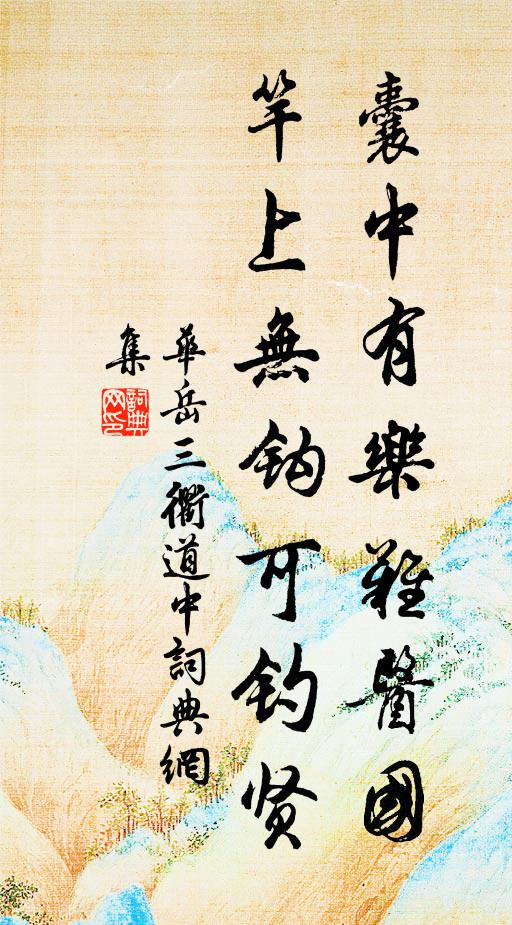 囊中有樂難醫國
竿上無鈎可釣贤
華岳三衢道中詞典網
集
詞典
网印